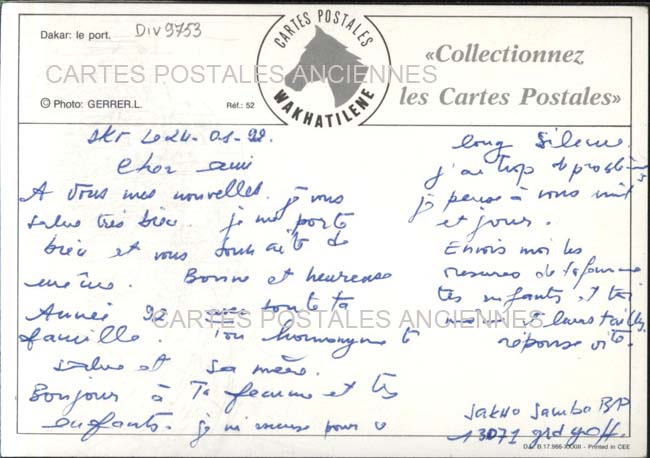 Dakar: le port.
DIV9753
CARTES POSTALES
WAKHATILENE
«Collectionnez
les Cartes Postales»
CARTES POSTALES ANCIENNES
© Photo: GERRER.L.
Réf.: 52
Dkr le 24-01-92
Cher ami
A vous mes nouvelles. je vous
salue très bien. je me porte
bien et vous souhaite de
même. Bonne et heureuse
Année 92 toute ta
famille. Ton homonyme te
salue et sa mère.
Bonjour à Ta femme et tes
enfants. je m'excuse pour ce
long silence.
j'ai trop de problèmes
je pense à vous nuit
et jour.
Envois moi les
mesures de ta femme
tes enfants et toi
et leurs tailles
réponse vite.
CARTES POSTALES ANCIENNES
Sakho Samba BP
13071 grd yoff.
Printed in CEE